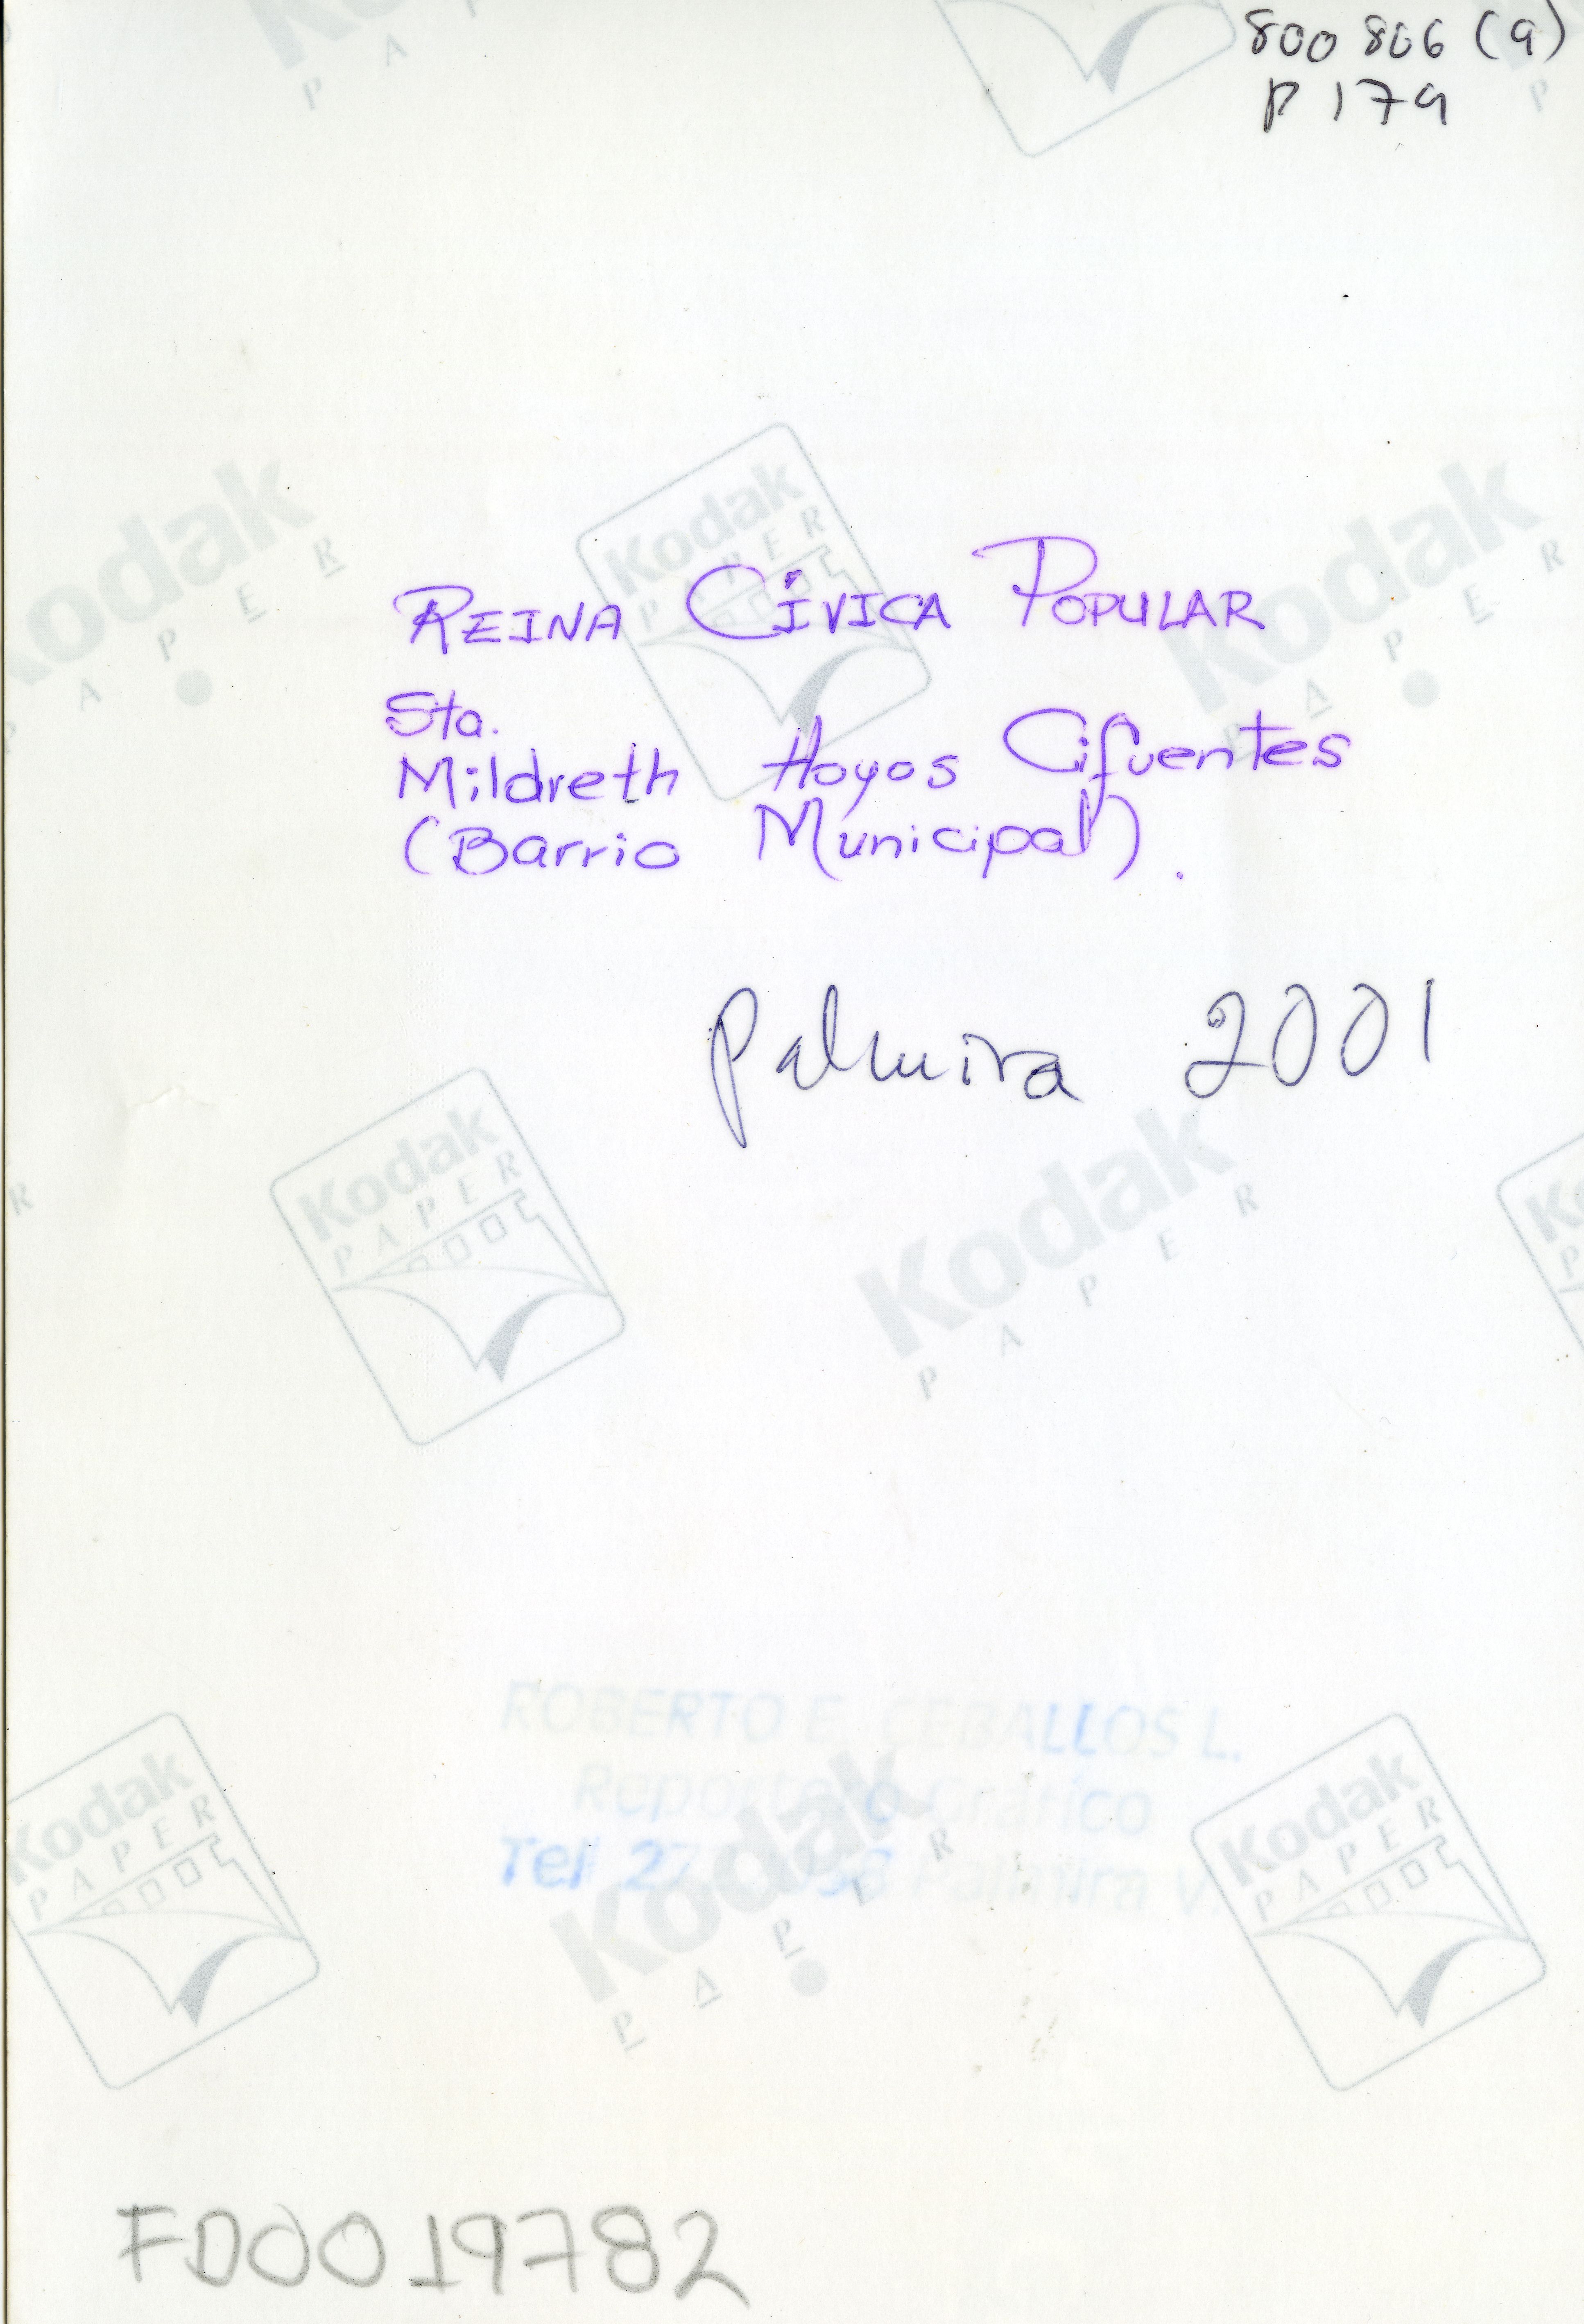 800 806 (9)
P 179
REINA CÍVICA POPULAR
Sta.
Mildreth Hoyos Cifuentes
(Barrio Municipal).
Palmira 2001
ROBERTO E. CEBALLOS L.
Reportero Gráfico
Tel Palmira V.
FD0019782
Kodak
PAPER